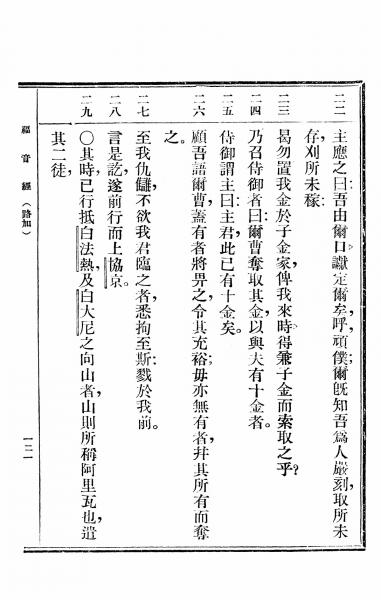 二二 主應之曰、吾由爾口讞定爾矣、呼、頑僕、爾旣知吾爲人嚴刻、取所未
存、刈所未稼、
二三 曷勿置我金於子金家、俾我來時、得兼子金而索取之乎？
二四 乃召侍御者曰、爾曹奪取其金、以與夫有十金者。
二五 侍御謂主曰、主君、此已有十金矣。
二六 顧吾語爾曹、蓋有者將畀之、令其充裕、毋亦無有者、幷其所有而奪
之。
二七 至我仇讎、不欲我君臨之者、悉拘至斯、戮於我前。
二八 言是訖、遂前行而上協京。
二九 ○其時已行抵白法熱、及白大尼之向山者、山則所稱阿里瓦也、遣
其二徒、
福音經（路加）
一二一